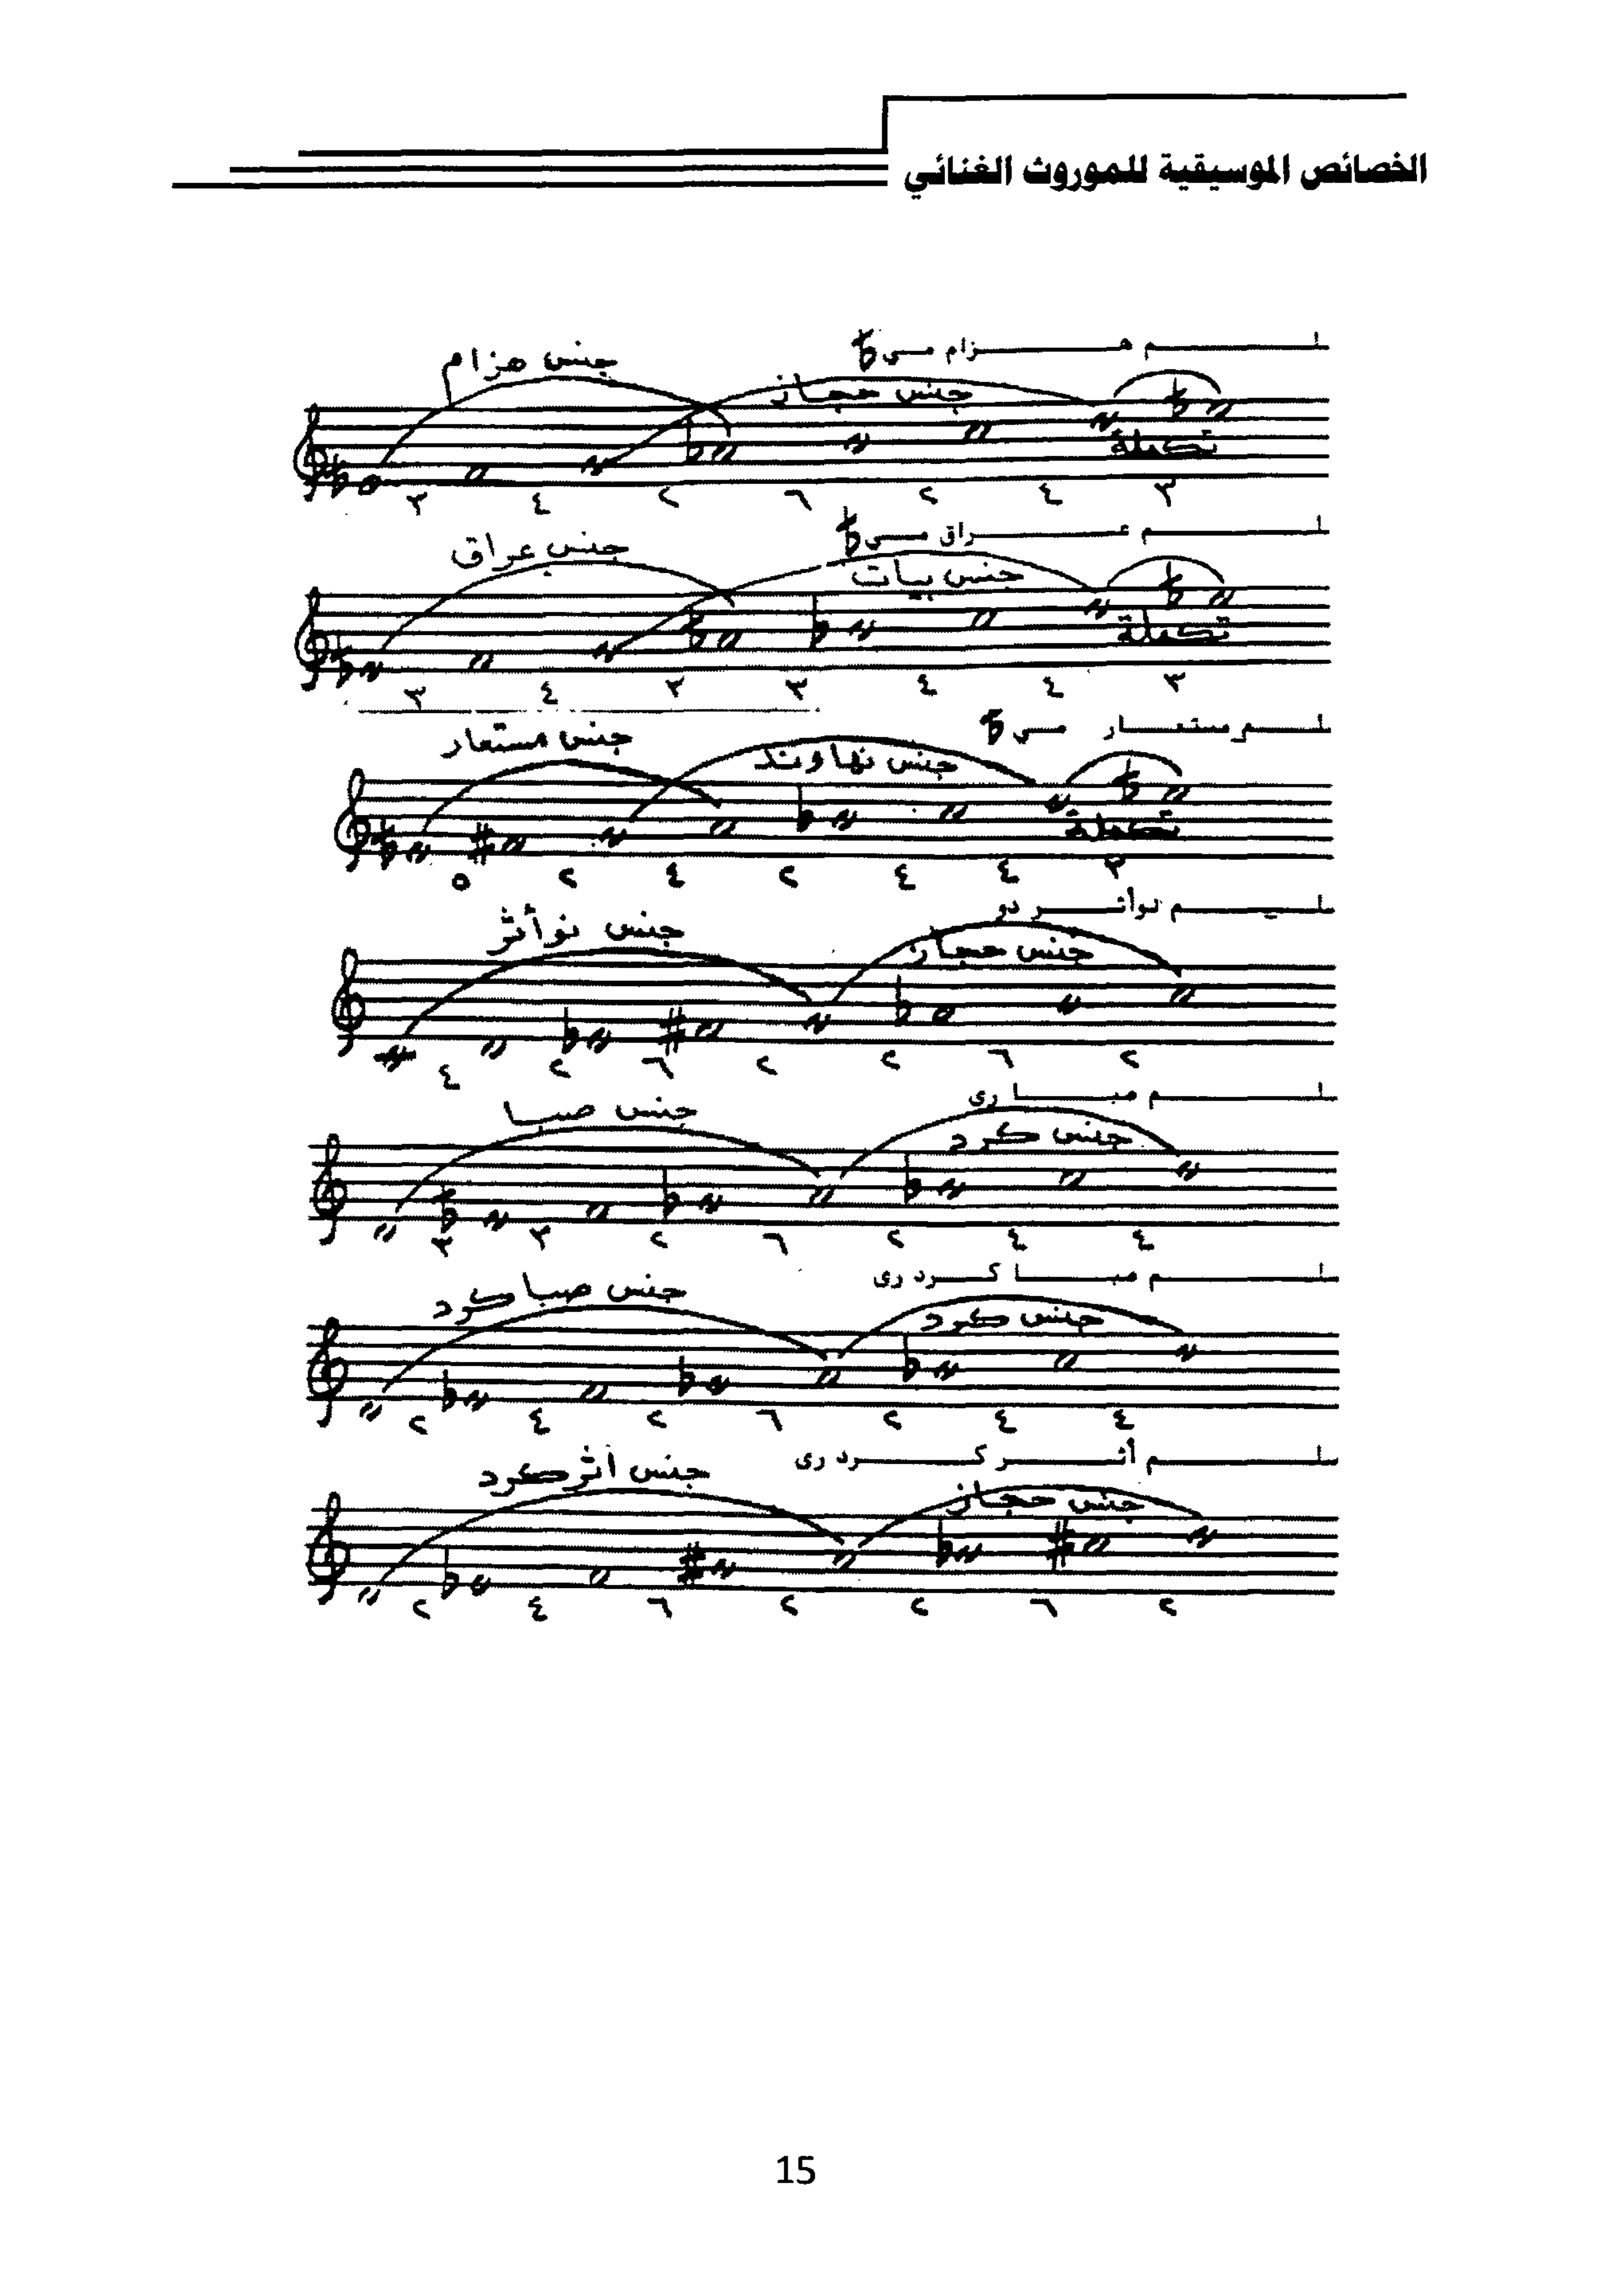 الخصائص الموسيقية للموروث الغنائي
سلم هزام مي
جنس هزام
جنس حجاز
تكملة
٣ ٤ ٢ ٦ ٢ ٤ ٣
سلم عراق مي
جنس عراق
جنس بيات
تكملة
٣ ٤ ٣ ٣ ٤ ٤ ٣
سلم مستعار مي
جنس مستعار
جنس نهاوند
تكملة
٥ ٢ ٤ ٢ ٤ ٤ ٣
سلم نوأثر دو
جنس نوأثر
جنس حجاز
٤ ٢ ٦ ٢ ٢ ٦ ٢
سلم صبا رى
جنس صبا
جنس كرد
٣ ٣ ٢ ٦ ٢ ٤ ٤
سلم صبا كرد رى
جنس صبا كرد
جنس كرد
٢ ٤ ٢ ٦ ٢ ٤ ٤
سلم أثر كرد رى
جنس أثر كرد
جنس حجاز
٢ ٤ ٦ ٢ ٢ ٦ ٢
15